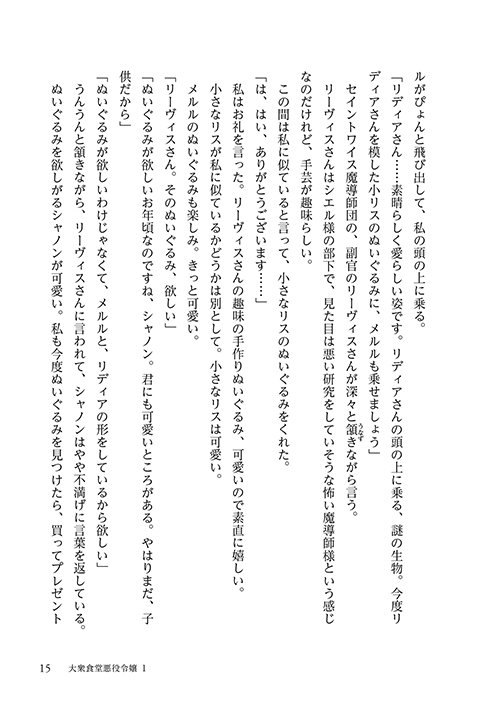 ルがぴょんと飛び出して、私の頭の上に乗る。
「リディアさん……素晴らしく愛らしい姿です。リディアさんの頭の上に乗る、謎の生物。今度リ
ディアさんを模した小リスのぬいぐるみに、メルルも乗せましょう」
セイントワイス魔導師団の、副官のリーヴィスさんが深々と頷きながら言う。
うなず
リーヴィスさんはシエル様の部下で、見た目は悪い研究をしていそうな怖い魔導師様という感じ
なのだけれど、手芸が趣味らしい。
この間は私に似ていると言って、小さなリスのぬいぐるみをくれた。
「は、はい、ありがとうございます……」
私はお礼を言った。リーヴィスさんの趣味の手作りぬいぐるみ、可愛いので素直に嬉しい。
小さなリスが私に似ているかどうかは別として。小さなリスは可愛い。
メルルのぬいぐるみも楽しみ。きっと可愛い。
「リーヴィスさん。そのぬいぐるみ、欲しい」
「ぬいぐるみが欲しいお年頃なのですね、シャノン。君にも可愛いところがある。やはりまだ、子
供だから」
「ぬいぐるみが欲しいわけじゃなくて、メルルと、リディアの形をしているから欲しい」
うんうんと頷きながら、リーヴィスさんに言われて、シャノンはやや不満げに言葉を返している。
ぬいぐるみを欲しがるシャノンが可愛い。私も今度ぬいぐるみを見つけたら、買ってプレゼント
15 大衆食堂悪役令嬢 1